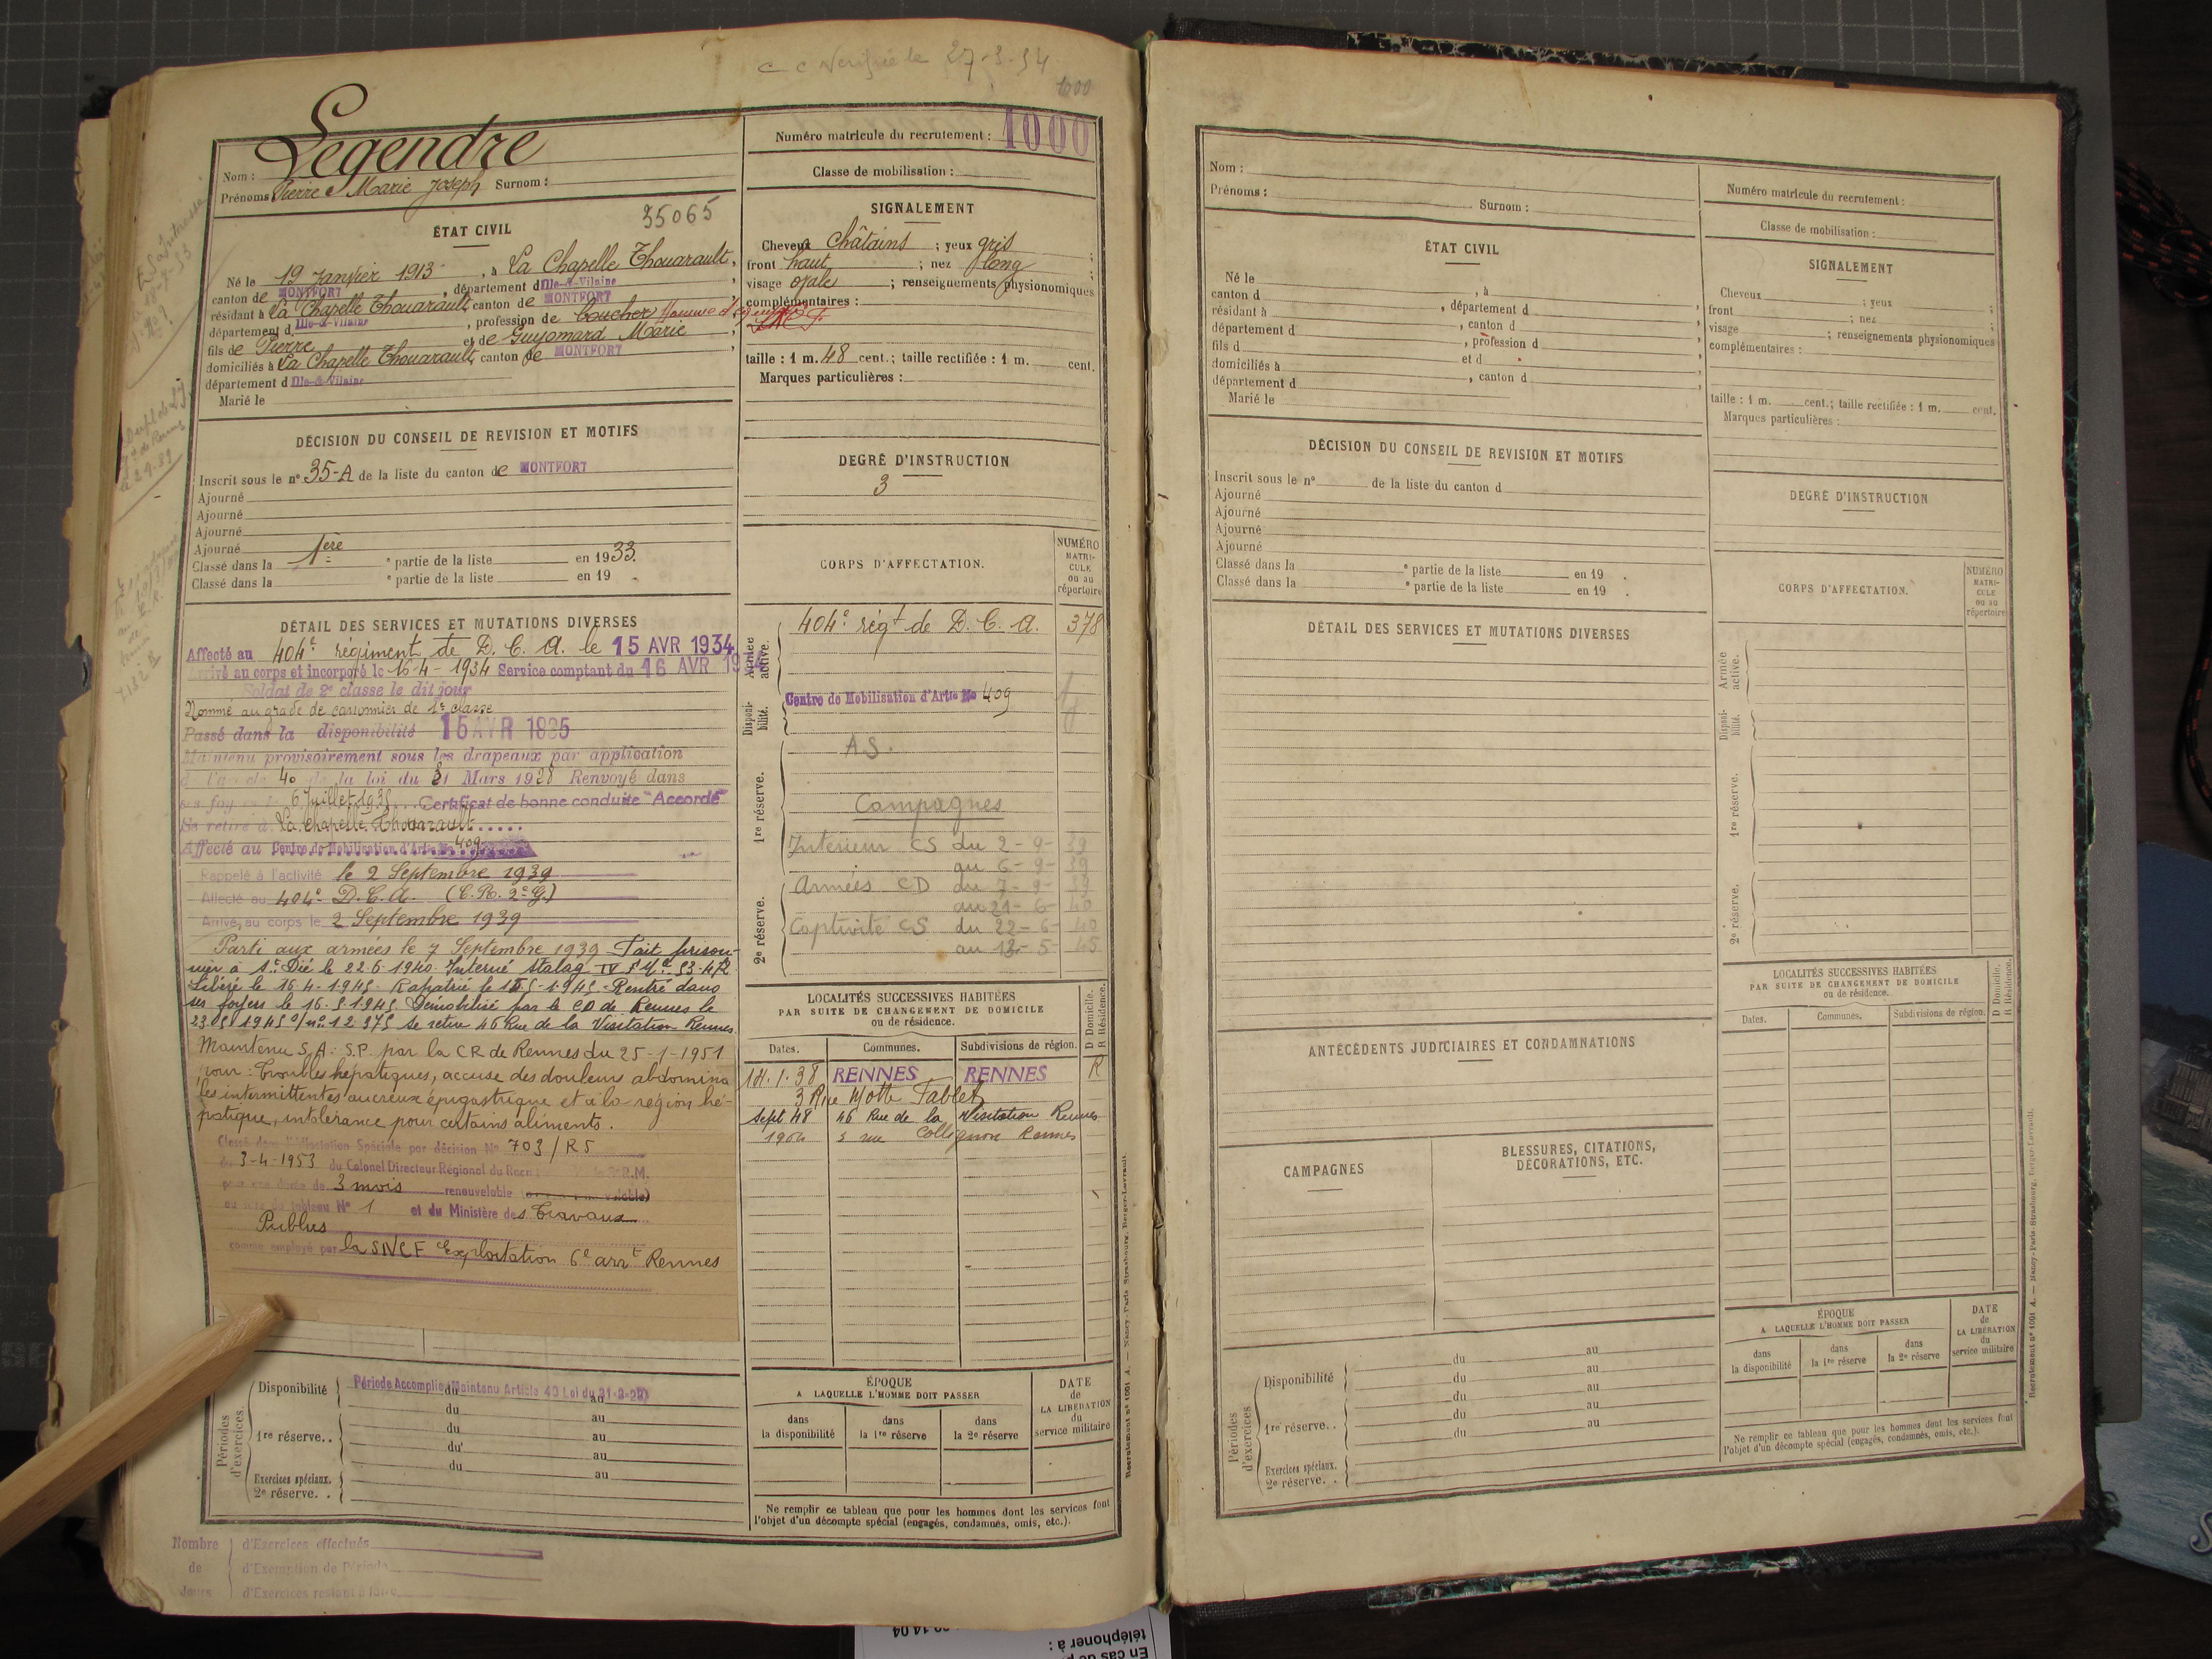 c c Verifié le 27-3-54
1000
Nom : Legendre
Prénoms Pierre Marie Joseph Surnom :
ÉTAT CIVIL
35065
Né le 19 Janvier 1913, à La Chapelle Thouarault,
canton de MONTFORT, département d Ille-&-Vilaine,
résidant à La Chapelle Thouarault, canton de MONTFORT
département d Ille-&-Vilaine, profession de boucher Homme d'équipe SNCF
fils de Pierre et de Guyomard Marie
domiciliés à La Chapelle Thouarault, canton de MONTFORT
département d Ille-&-Vilaine
Marié le
DÉCISION DU CONSEIL DE REVISION ET MOTIFS
Inscrit sous le n° 35-A de la liste du canton de MONTFORT
Ajourné
Ajourné
Ajourné
Ajourné
Classé dans la 1ère e partie de la liste en 1933.
Classé dans la e partie de la liste en 19 .
DÉTAIL DES SERVICES ET MUTATIONS DIVERSES
Affecté au 404e régiment de D. C. A. le 15 AVR 1934
Arrivé au corps et incorporé le 16-4-1934 Service comptant du 16 AVR 19
Soldat de 2e classe le dit jour
Nommé au grade de canonnier de 1re classe
Passé dans la disponibilité 15 AVR 1935
Maintenu provisoirement sous les drapeaux par application
de l'article 40 de la loi du 31 Mars 1928 Renvoyé dans
ses foyers le 6 Juillet 1935 Certificat de bonne conduite "Accordé"
Se retire à La Chapelle Thouarault
Affecté au Centre de Mobilisation d'Artie No 409
Rappelé à l'activité le 2 Septembre 1939
Affecté au 404e D.C.A.
Arrivé au corps le 2 Septembre 1939
Parti aux armées le 7 Septembre 1939 Fait prison-
nier à St Dié le 22.6.1940. Interné stalag IV F
Libéré le 16.4.1945. Rapatrié le 1945. Rentré dans
ses foyers le 16.5.1945. Démobilisé par le CD de Rennes le
23.05.1945 s/n° 12.375 se retire 46 Rue de la Visitation Rennes
Maintenu S.A. : S.P. par la CR de Rennes du 25-1-1951
pour : Troubles hépatiques, accuse des douleurs abdomina
les intermittentes au creux épigastrique et à la région hé-
patique, intolérance pour certains aliments.
Classé dans l'Affectation Spéciale par décision N° 703/RS
du 3-4-1953 du Colonel Directeur Régional du Recr R.M.
pour une durée de 3 mois renouvelable
au titre du tableau N° 1 et du Ministère des Travaux
Publics
comme employé par la SNCF Exploitation 6e arrt Rennes
Périodes d'exercices.
Disponibilité Période Accomplie (Maintenu Article 40 Loi du 31-3-28)
du au
du au
1re réserve. . du au
du au
du au
Exercices spéciaux.
2e réserve. .
Nombre de Jours
d'Exercices effectués
d'Exemption de Période
d'Exercices restant à faire
Numéro matricule du recrutement : 1000
Classe de mobilisation :
SIGNALEMENT
Cheveux châtains ; yeux gris ;
front haut ; nez long ;
visage ovale ; renseignements physionomiques
complémentaires :
taille : 1 m. 48 cent. ; taille rectifiée : 1 m. cent.
Marques particulières :
DEGRÉ D'INSTRUCTION
3
CORPS D'AFFECTATION.
NUMÉRO MATRI-CULE ou au répertoire
Armée active.
404e régt de D. C. A. 378
Disponi-bilité.
Centre de Mobilisation d'Artie No 409
1re réserve.
A.S.
Campagnes
Intérieur CS du 2-9-39
au 6-9-39
2e réserve.
Armées CD du 7-9-39
au 21-6-40
Captivité CS du 22-6-40
au 12-5-45
LOCALITÉS SUCCESSIVES HABITÉES
PAR SUITE DE CHANGEMENT DE DOMICILE
ou de résidence.
D Domicile.
R Résidence.
Dates. Communes. Subdivisions de région.
RENNES RENNES R
3 Rue Motte Fablet
Sept 48 46 Rue de la Visitation Rennes
rue Rennes
ÉPOQUE
A LAQUELLE L'HOMME DOIT PASSER
dans la disponibilité
dans la 1re réserve
dans la 2e réserve
DATE de LA LIBÉRATION du service militaire
Ne remplir ce tableau que pour les hommes dont les services font
l'objet d'un décompte spécial (engagés, condamnés, omis, etc.).
Recrutement n° 1001 A. — Nancy-Paris-Strasbourg, Berger-Levrault.
Nom :
Prénoms : Surnom :
ÉTAT CIVIL
Né le , à
canton d , département d ,
résidant à , canton d
département d , profession d ,
fils d et d
domiciliés à , canton d ,
département d
Marié le
DÉCISION DU CONSEIL DE REVISION ET MOTIFS
Inscrit sous le n° de la liste du canton d
Ajourné
Ajourné
Ajourné
Ajourné
Classé dans la e partie de la liste en 19 .
Classé dans la e partie de la liste en 19 .
DÉTAIL DES SERVICES ET MUTATIONS DIVERSES
ANTÉCÉDENTS JUDICIAIRES ET CONDAMNATIONS
CAMPAGNES
BLESSURES, CITATIONS,
DÉCORATIONS, ETC.
Périodes d'exercices
Disponibilité du au
du au
1re réserve. . du au
du au
du au
Exercices spéciaux.
2e réserve. .
Numéro matricule du recrutement :
Classe de mobilisation :
SIGNALEMENT
Cheveux ; yeux ;
front ; nez ;
visage ; renseignements physionomiques
complémentaires :
taille : 1 m. cent. ; taille rectifiée : 1 m. cent.
Marques particulières :
DEGRÉ D'INSTRUCTION
CORPS D'AFFECTATION.
NUMÉRO MATRI-CULE ou au répertoire
Armée active.
Disponi-bilité.
1re réserve.
2e réserve.
LOCALITÉS SUCCESSIVES HABITÉES
PAR SUITE DE CHANGEMENT DE DOMICILE
ou de résidence.
D Domicile.
R Résidence.
Dates. Communes. Subdivisions de région.
ÉPOQUE
A LAQUELLE L'HOMME DOIT PASSER
dans la disponibilité
dans la 1re réserve
dans la 2e réserve
DATE de LA LIBÉRATION du service militaire
Ne remplir ce tableau que pour les hommes dont les services font
l'objet d'un décompte spécial (engagés, condamnés, omis, etc.).
Recrutement n° 1001 A. — Nancy-Paris-Strasbourg, Berger-Levrault.
téléphoner à :